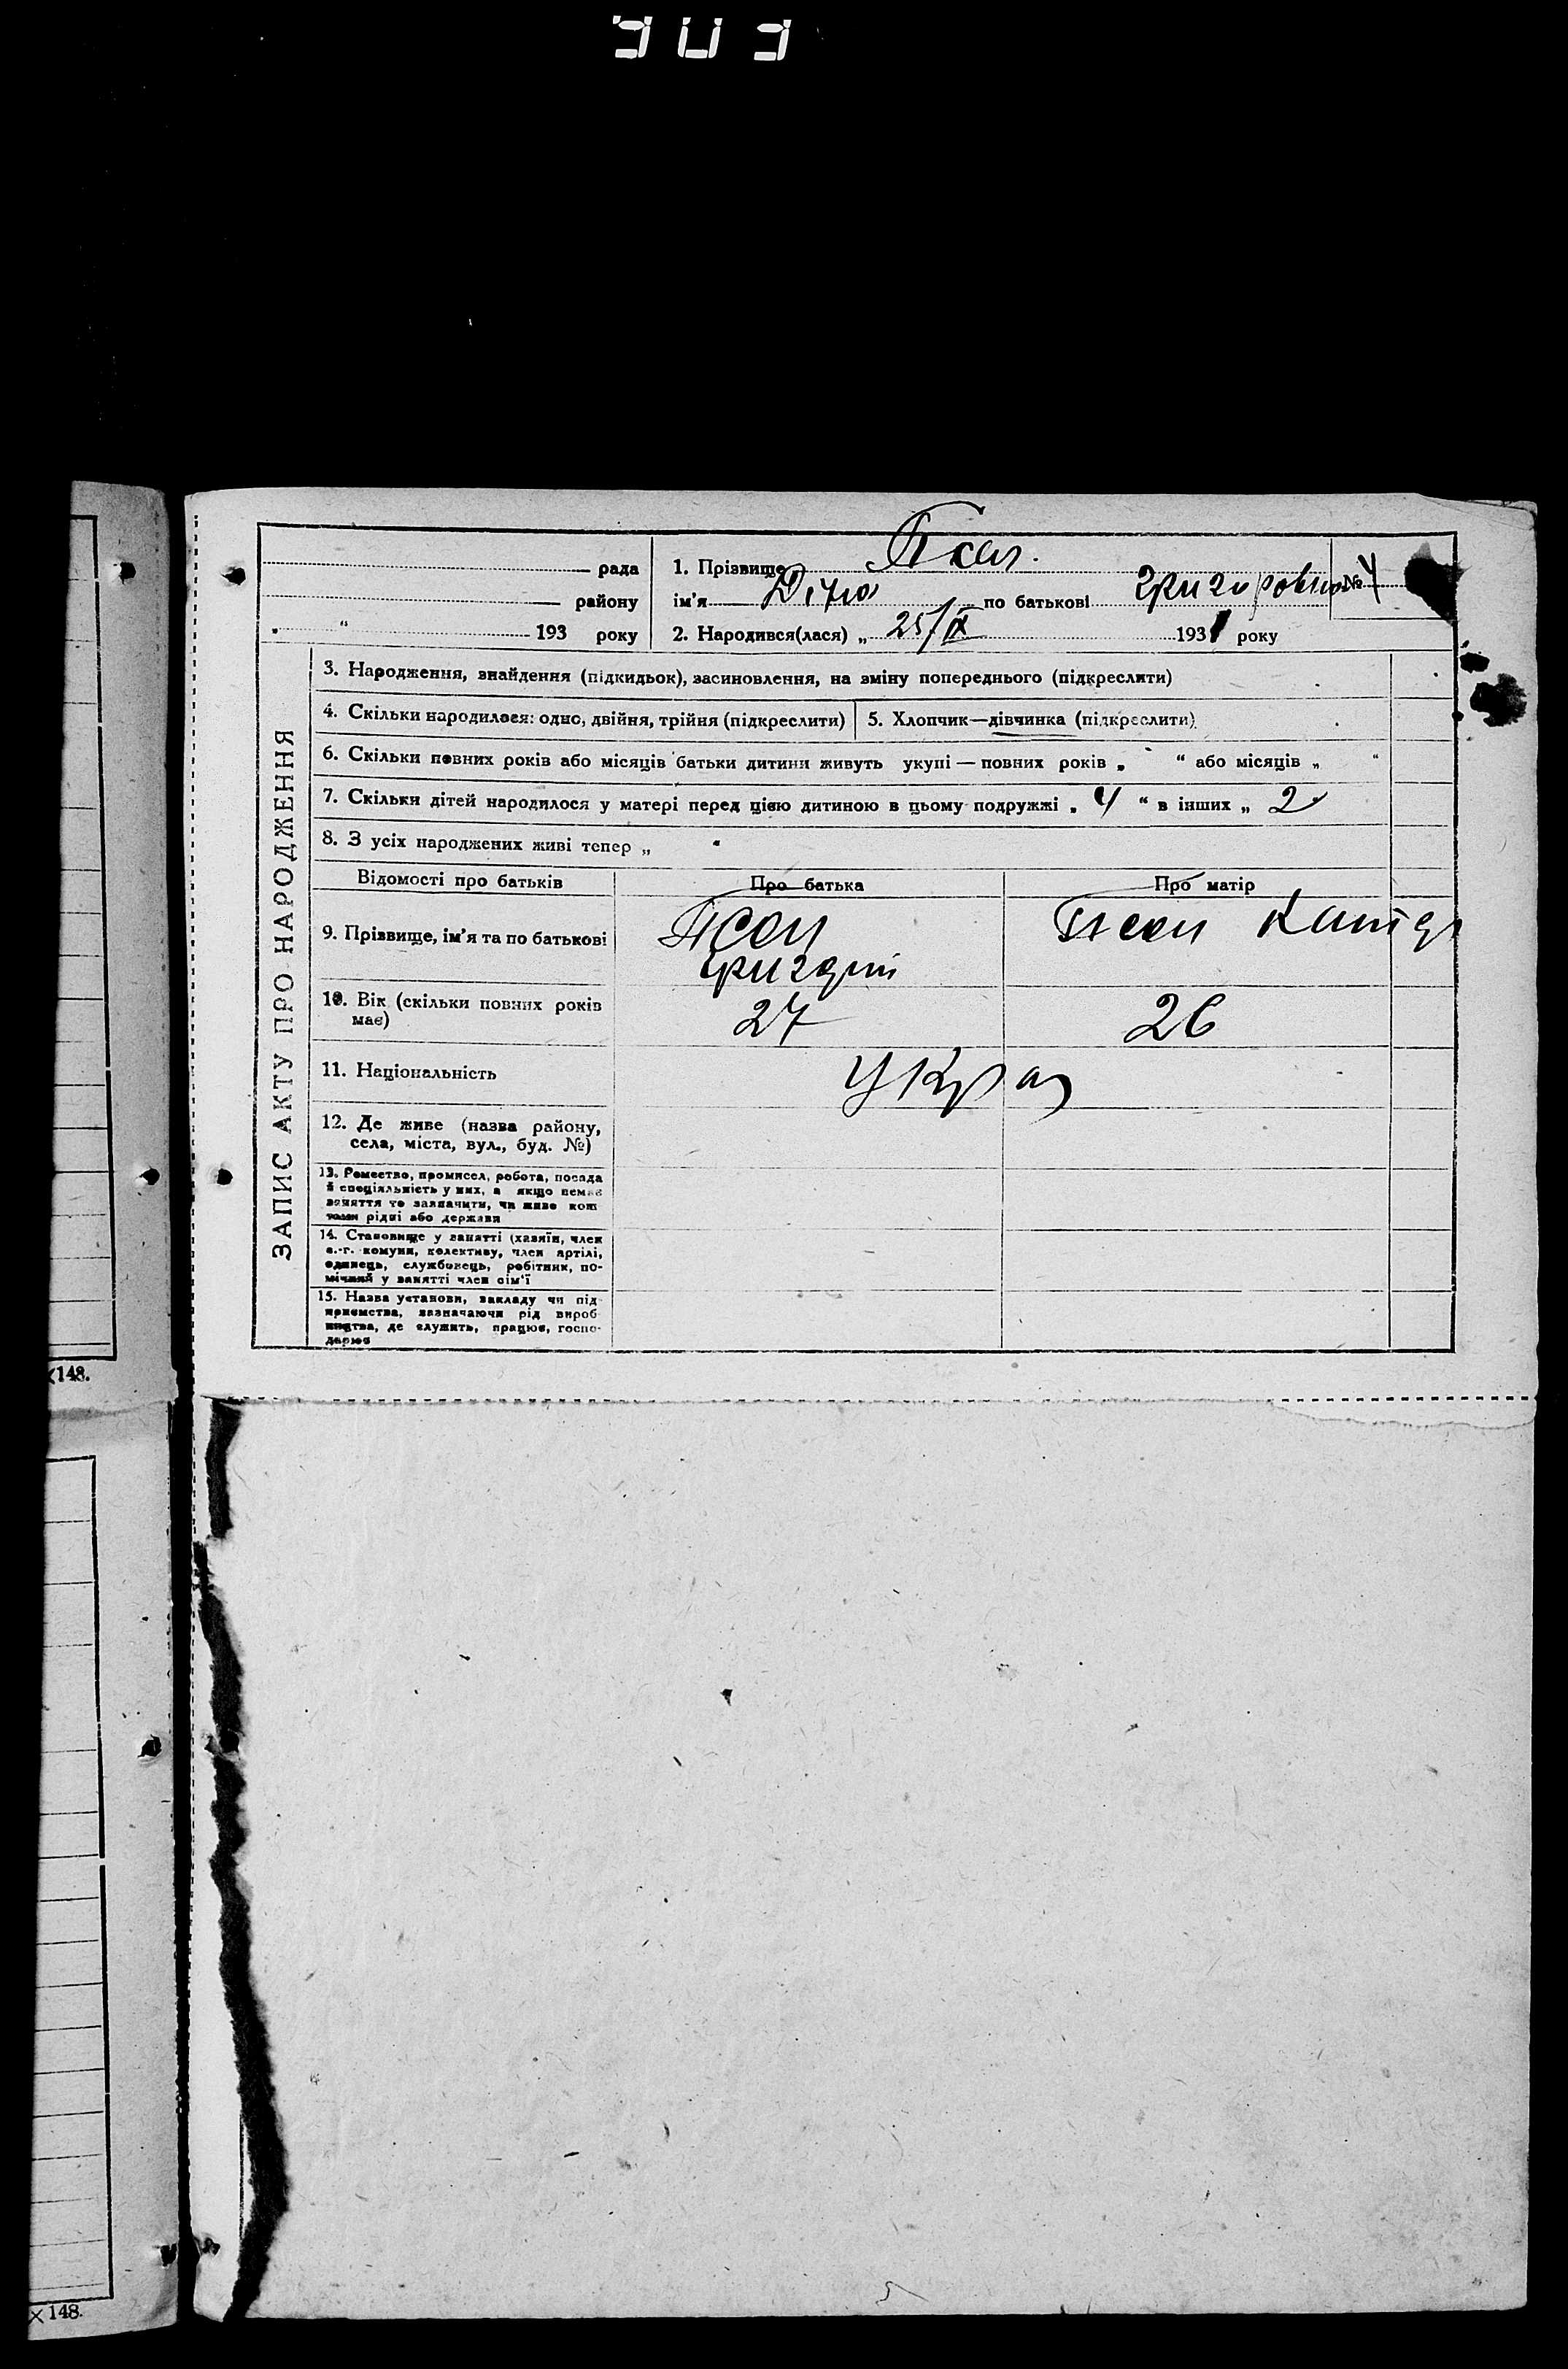 903
рада
району
" " 193 року
1. Прізвище Псол.
ім'я по батькові Григоровна № 4
2. Народився(лася) „ 25/IX 1931 року
ЗАПИС АКТУ ПРО НАРОДЖЕННЯ
3. Народження, знайдення (підкидьок), засиновлення, на зміну попереднього (підкреслити)
4. Скільки народилося: одно, двійня, трійня (підкреслити) 5. Хлопчик—дівчинка (підкреслити)
6. Скільки повних років або місяців батьки дитини живуть укупі — повних років „ “ або місяців „ “
7. Скільки дітей народилося у матері перед цією дитиною в цьому подружжі „ 4 “ в інших „ 2
8. З усіх народжених живі тепер „ “
Відомості про батьків Про батька Про матір
9. Прізвище, ім'я та по батькові Псол Григорій Псол Катер
10. Вік (скільки повних років має) 27 26
11. Національність Укра
12. Де живе (назва району, села, міста, вул., буд. №)
13. Ремество, промисел, робота, посада й спеціяльність у них, а якщо немає заняття то зазначити, чи живе кош
тами рідні або держави
14. Становище у занятті (хазяїн, член с.-г. комуни, колективу, член артілі, одинець, службовець, робітник, по-
мічний у занятті член сім'ї
15. Назва установи, закладу чи під-
приємства, зазначаючи рід вироб-
ництва, де служить, працює, госпо-
дарює
×148.
×148.